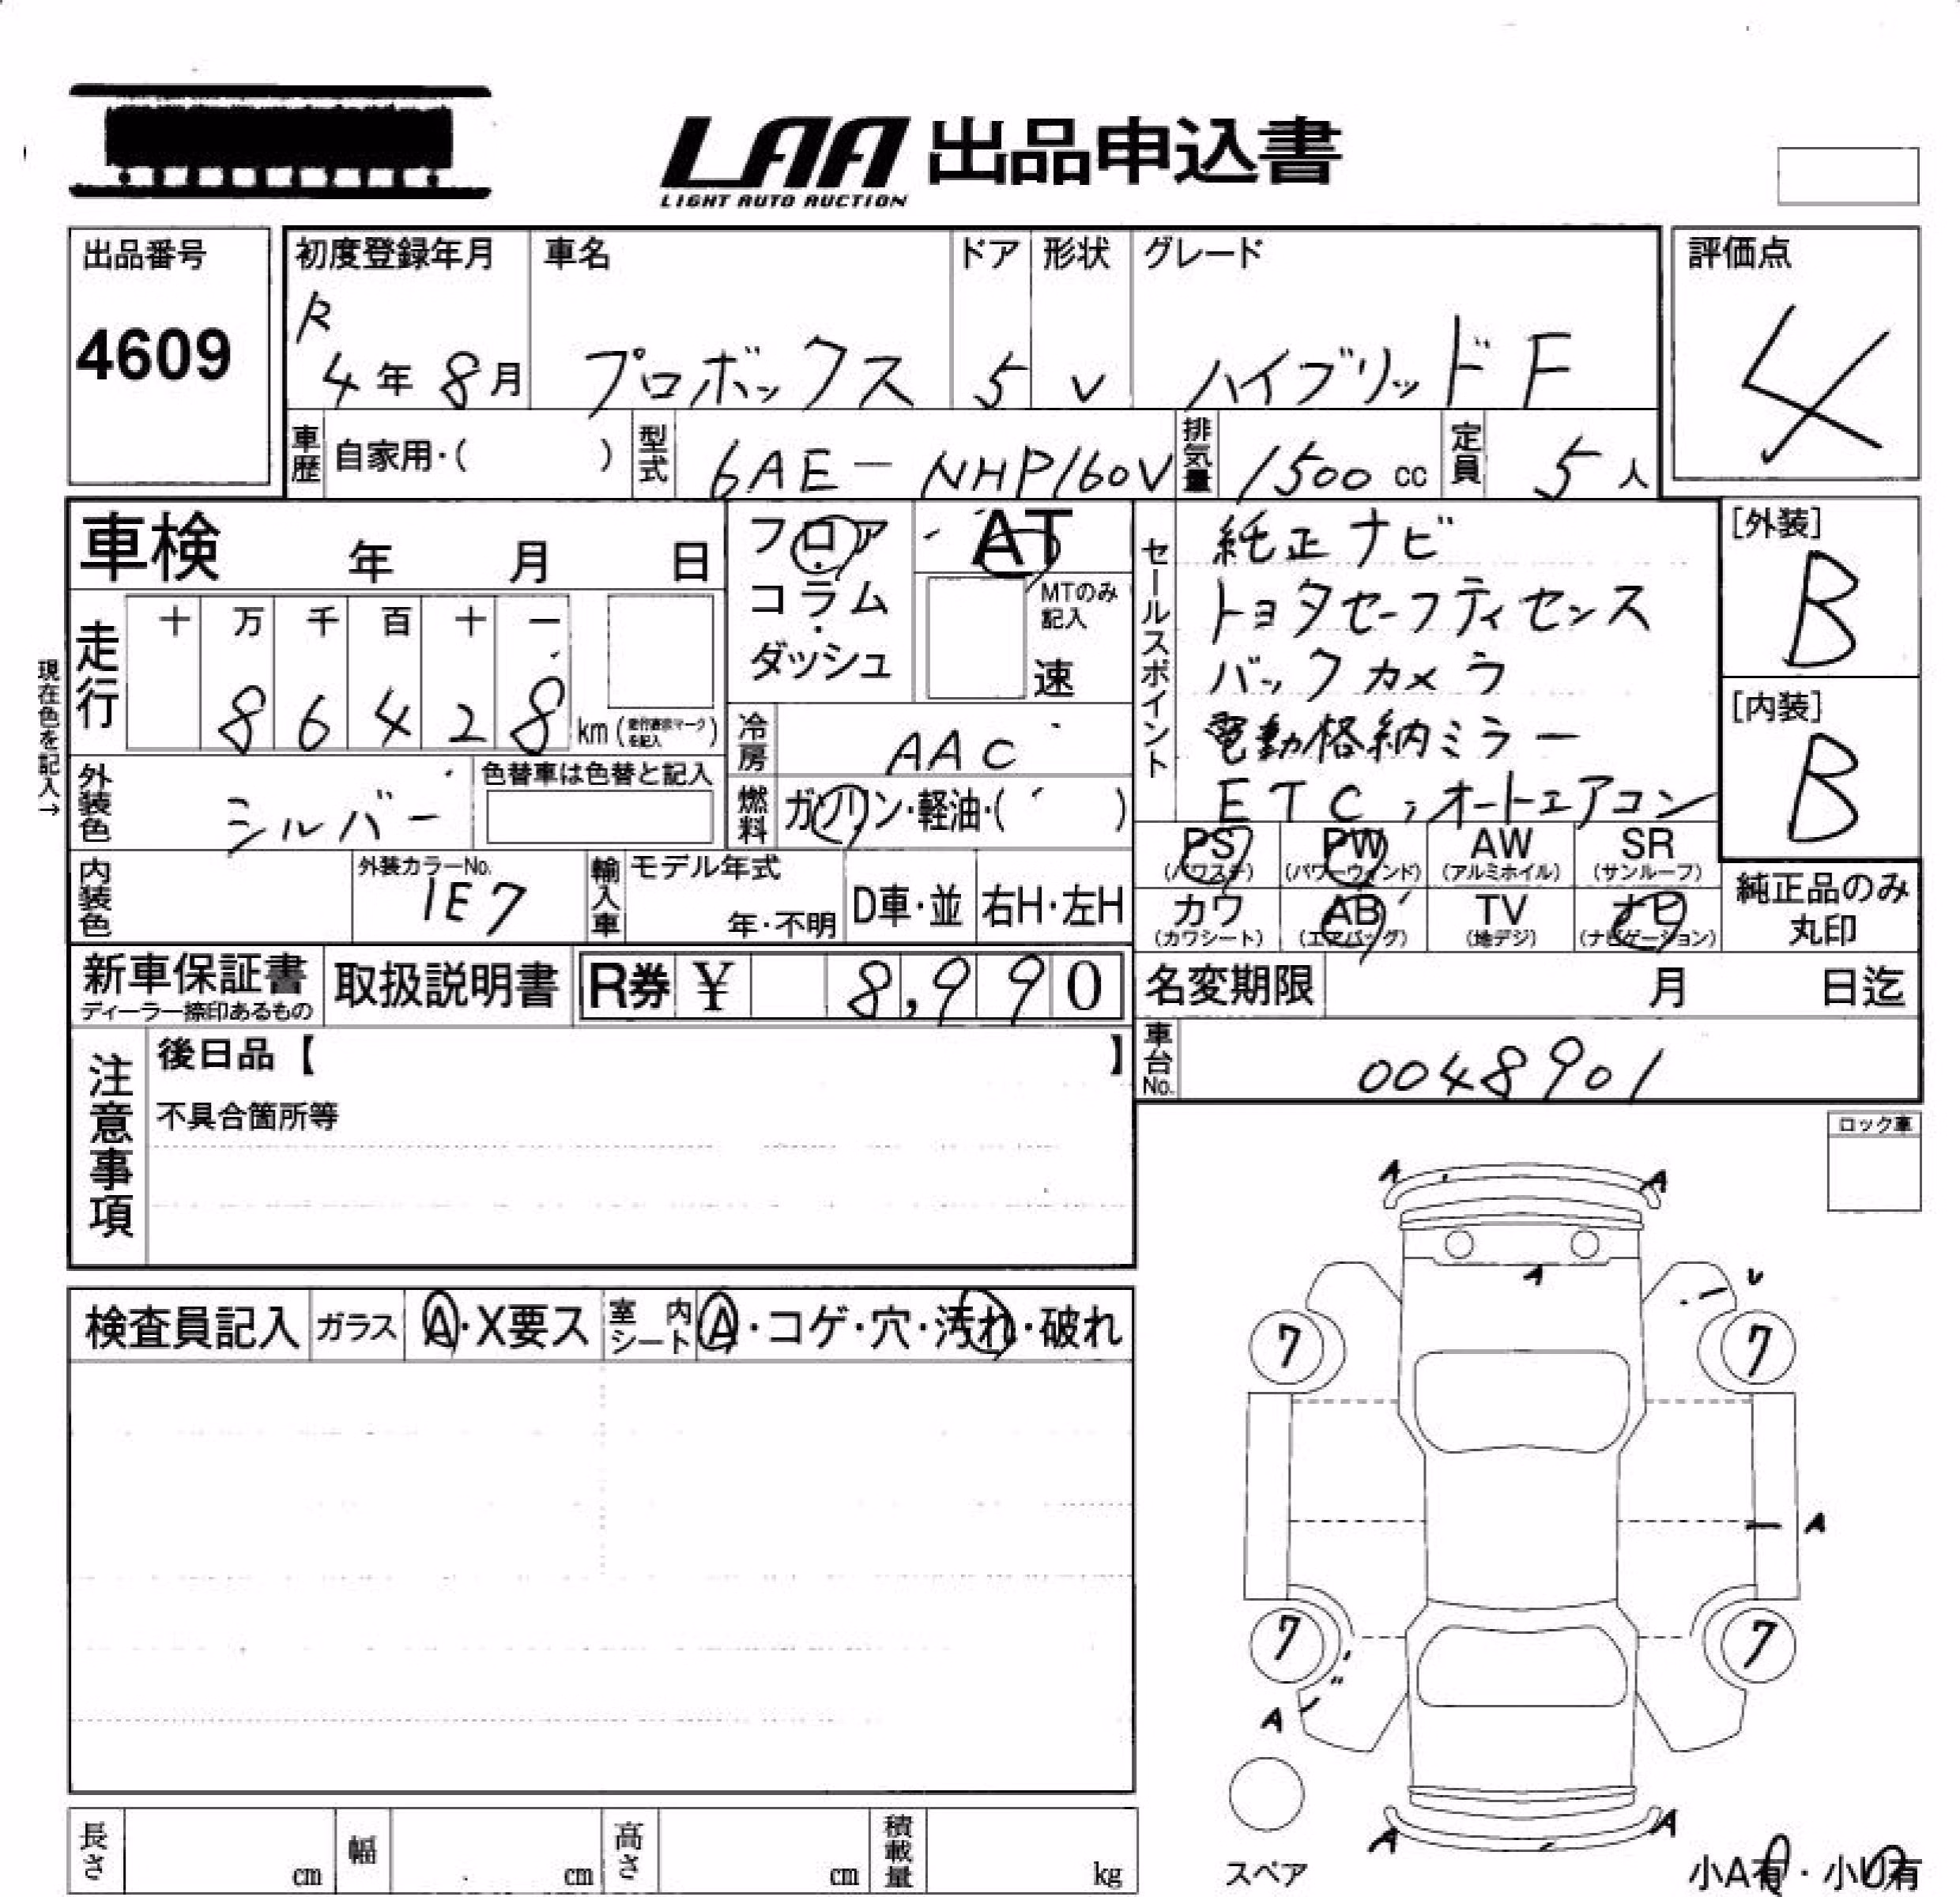 LAA 出品申込書
LIGHT AUTO AUCTION
出品番号
4609
初度登録年月 車名 ドア 形状 グレード
R
4年 8月 プロボックス 5 V ハイブリッド F
評価点
4
車歴 自家用・( ) 型式 6AE-NHP160V 排気量 1500 cc 定員 5 人
車検 年 月 日
フロア・コラム・ダッシュ
AT
MTのみ記入
速
現在色を記入→
走行 十 万 千 百 十 一
8 6 4 2 8 km (走行表示マークを記入)
冷房 AAC
外装色 シルバー
色替車は色替と記入
燃料 ガソリン・軽油・( )
セールスポイント
純正ナビ
トヨタセーフティセンス
バックカメラ
電動格納ミラー
ETC, オートエアコン
[外装]
B
[内装]
B
PS (パワステ) PW (パワーウィンド) AW (アルミホイル) SR (サンルーフ)
カワ (カワシート) AB (エアバッグ) TV (地デジ) ナビ (ナビゲーション)
純正品のみ
丸印
内装色 外装カラーNo. 1E7
輸入車 モデル年式 年・不明 D車・並 右H・左H
新車保証書
ディーラー捺印あるもの
取扱説明書 R券 ¥ 8,990
名変期限 月 日迄
車台No. 0048901
注意事項
後日品【 】
不具合箇所等
ロック車
検査員記入 ガラス A・X要ス 室内シート A・コゲ・穴・汚れ・破れ
A A
A
7 7
A
7 7
A
A A
スペア
小A有・小U有
長さ cm 幅 cm 高さ cm 積載量 kg